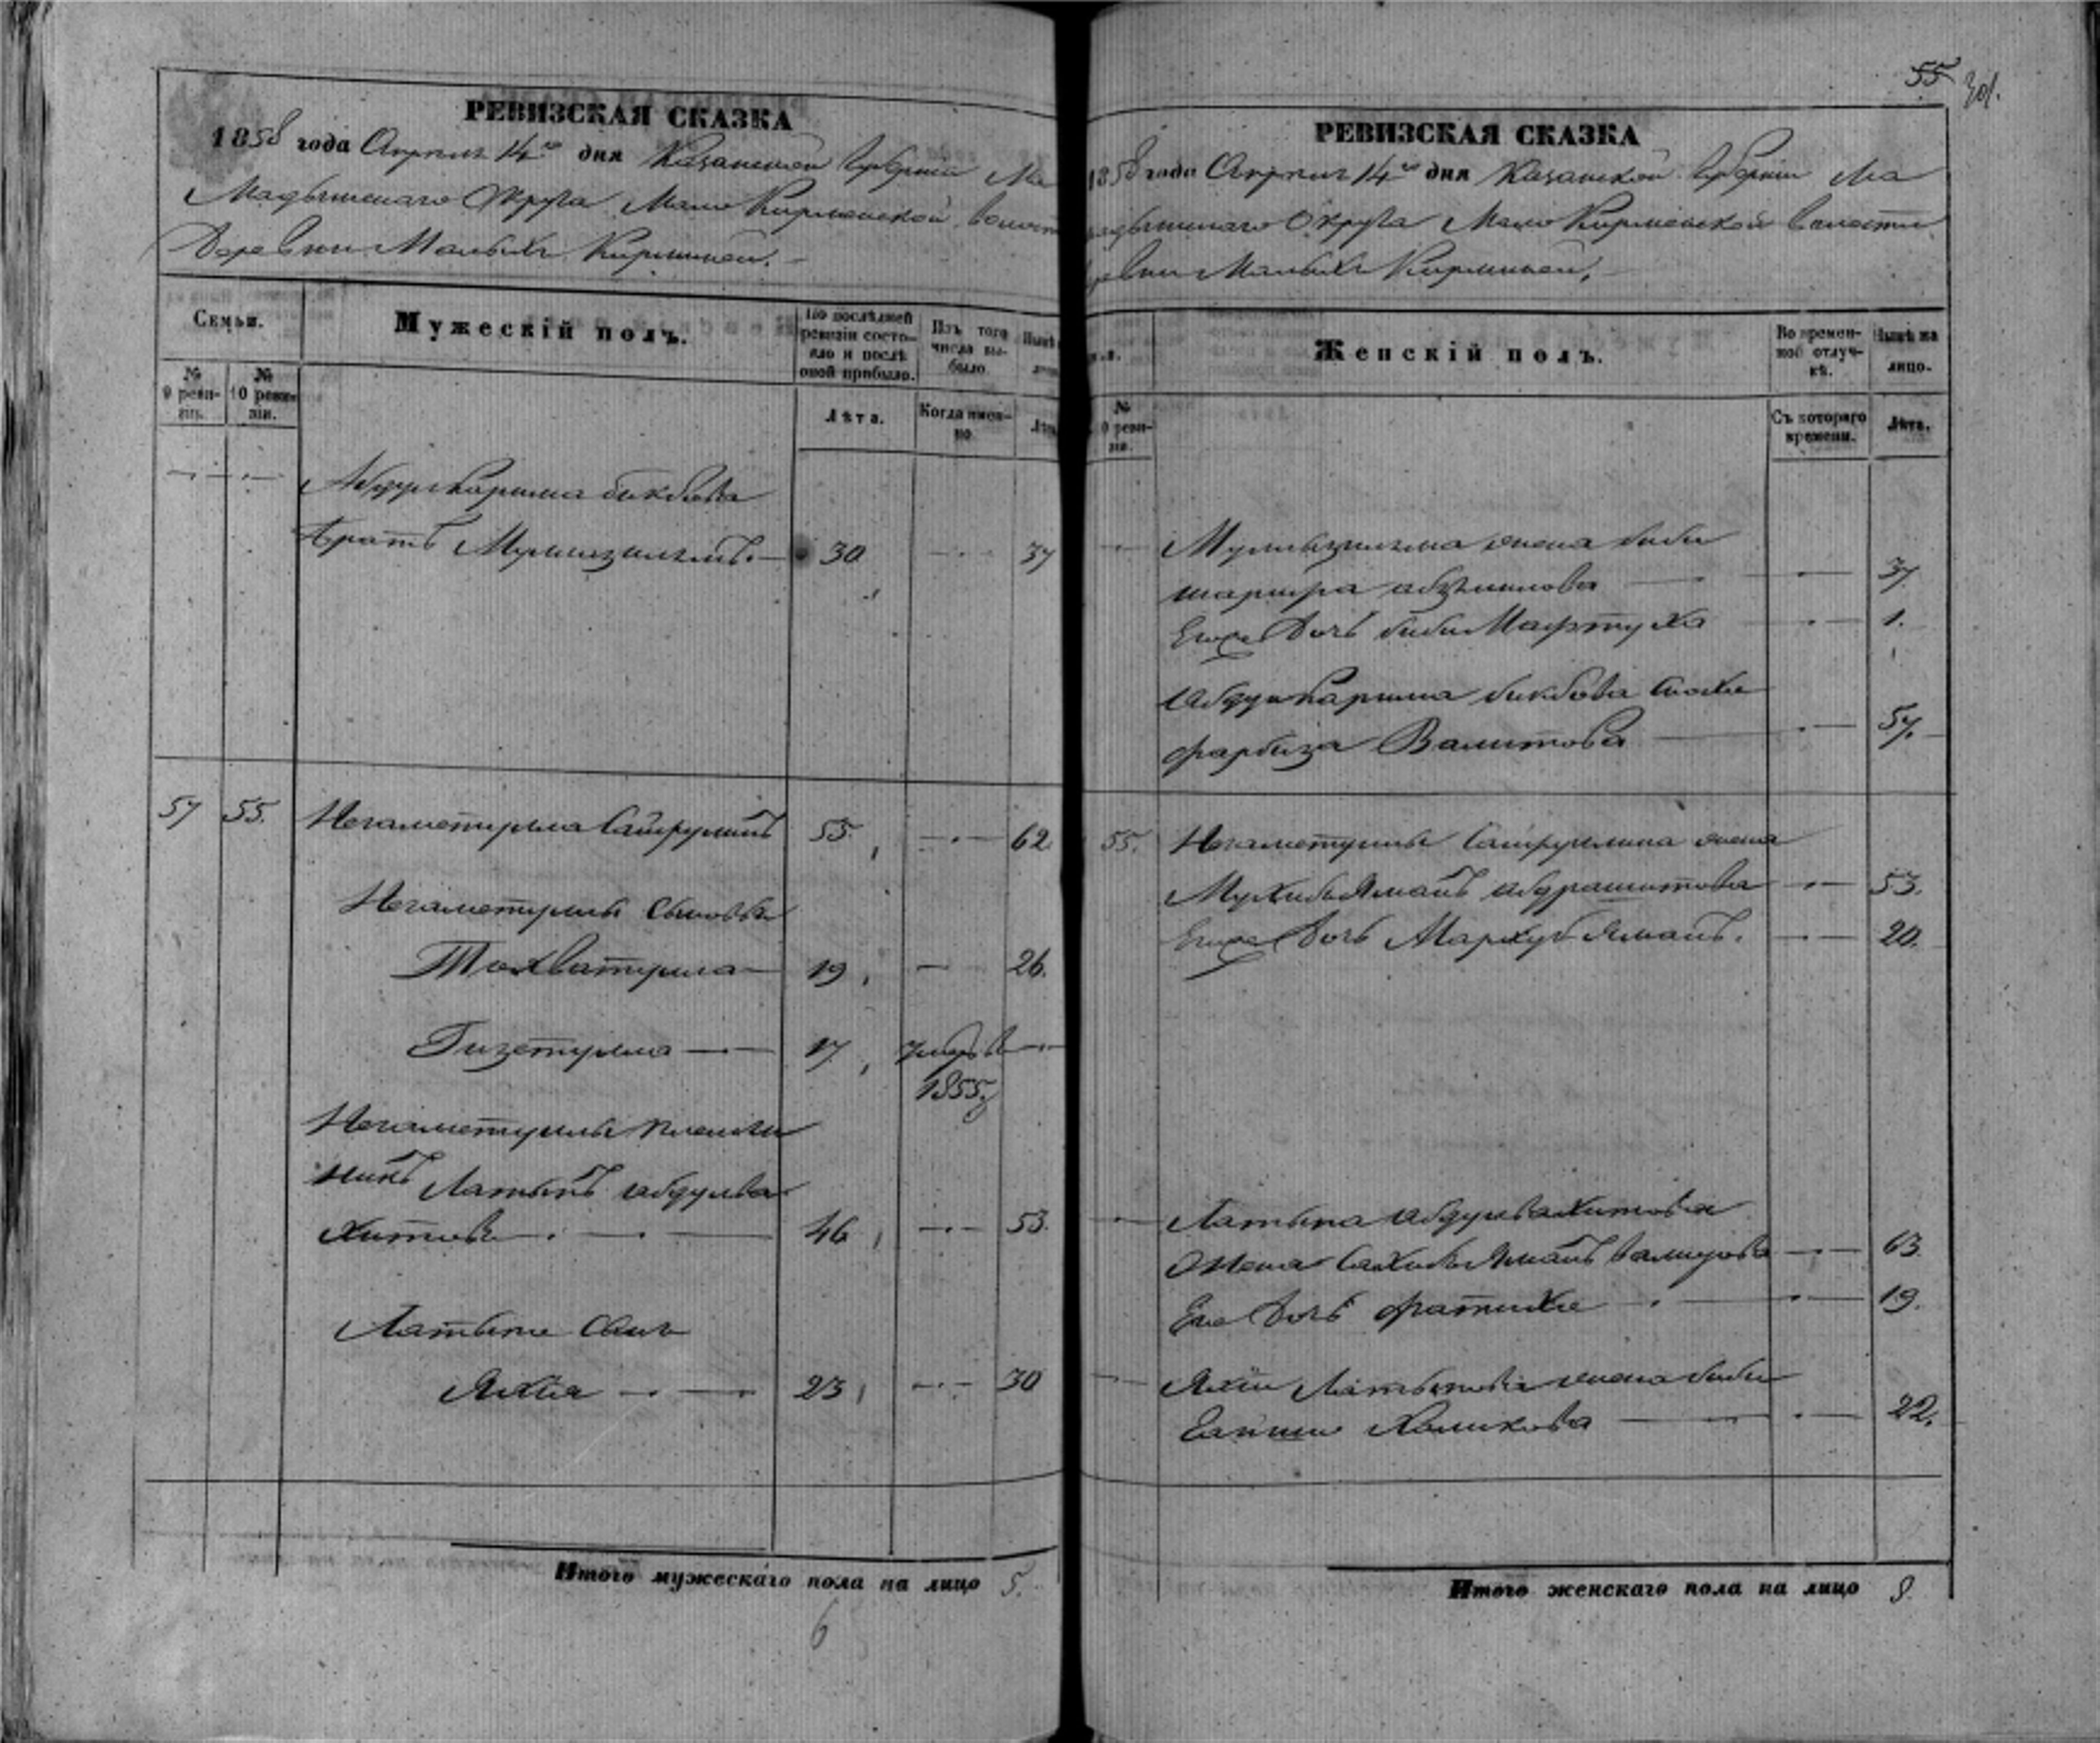 55 301.
РЕВИЗСКАЯ СКАЗКА
1858 года Апреля 14го дня Казанской Губернии Ма
Мадышскаго Округа Мало Кирменской волости
Деревни Малыхъ Кирменей.
Семьи.
Мужескій полъ.
По послѣдней ревизіи состояло и послѣ оной прибыло.
Изъ того числа выбыло
Нынѣ
№ 9 ревизіи.
№ 10 ревизіи.
Лѣта.
Когда именно
Лѣта
Абдулкарима бикбова
братъ 30 37
57 55. Негаметулла Сайфуллинъ 55. 62.
Негаметуллы сыновья
Тохватулла 19 26.
Гизетулла 17 умеръ въ
1855
Негаметуллы племян
никъ Латыпъ абдулва
хитовъ 46 53.
Латыпа сынъ
Яхья 23 30
Итого мужескаго пола на лицо 5.
6
РЕВИЗСКАЯ СКАЗКА
1858 года Апреля 14го дня Казанской Губерніи Ма
мадышскаго Округа Мало Кирменской волости
деревни Малыхъ Кирменей.
Женскій полъ.
Во временной отлучкѣ.
Нынѣ на лицо.
№ 10 ревизіи.
Съ котораго времени.
Лѣта.
жена биби
шарифа 37.
Дочь биби Мафтуха 1.
Абдулкарима бикбова сноха
фарбиза Валитова 57.
55. Негаметуллы Сайфуллина жена
Мухибъямалъ абдрашитова 53.
Дочь Мархубъямалъ. 20.
Латыпа Абдулвахитова
жена Сахибъямалъ 63
Его Дочь фатиха 19.
Яхіи Латыпова жена биби
Халикова 22.
Итого женскаго пола на лицо 8.